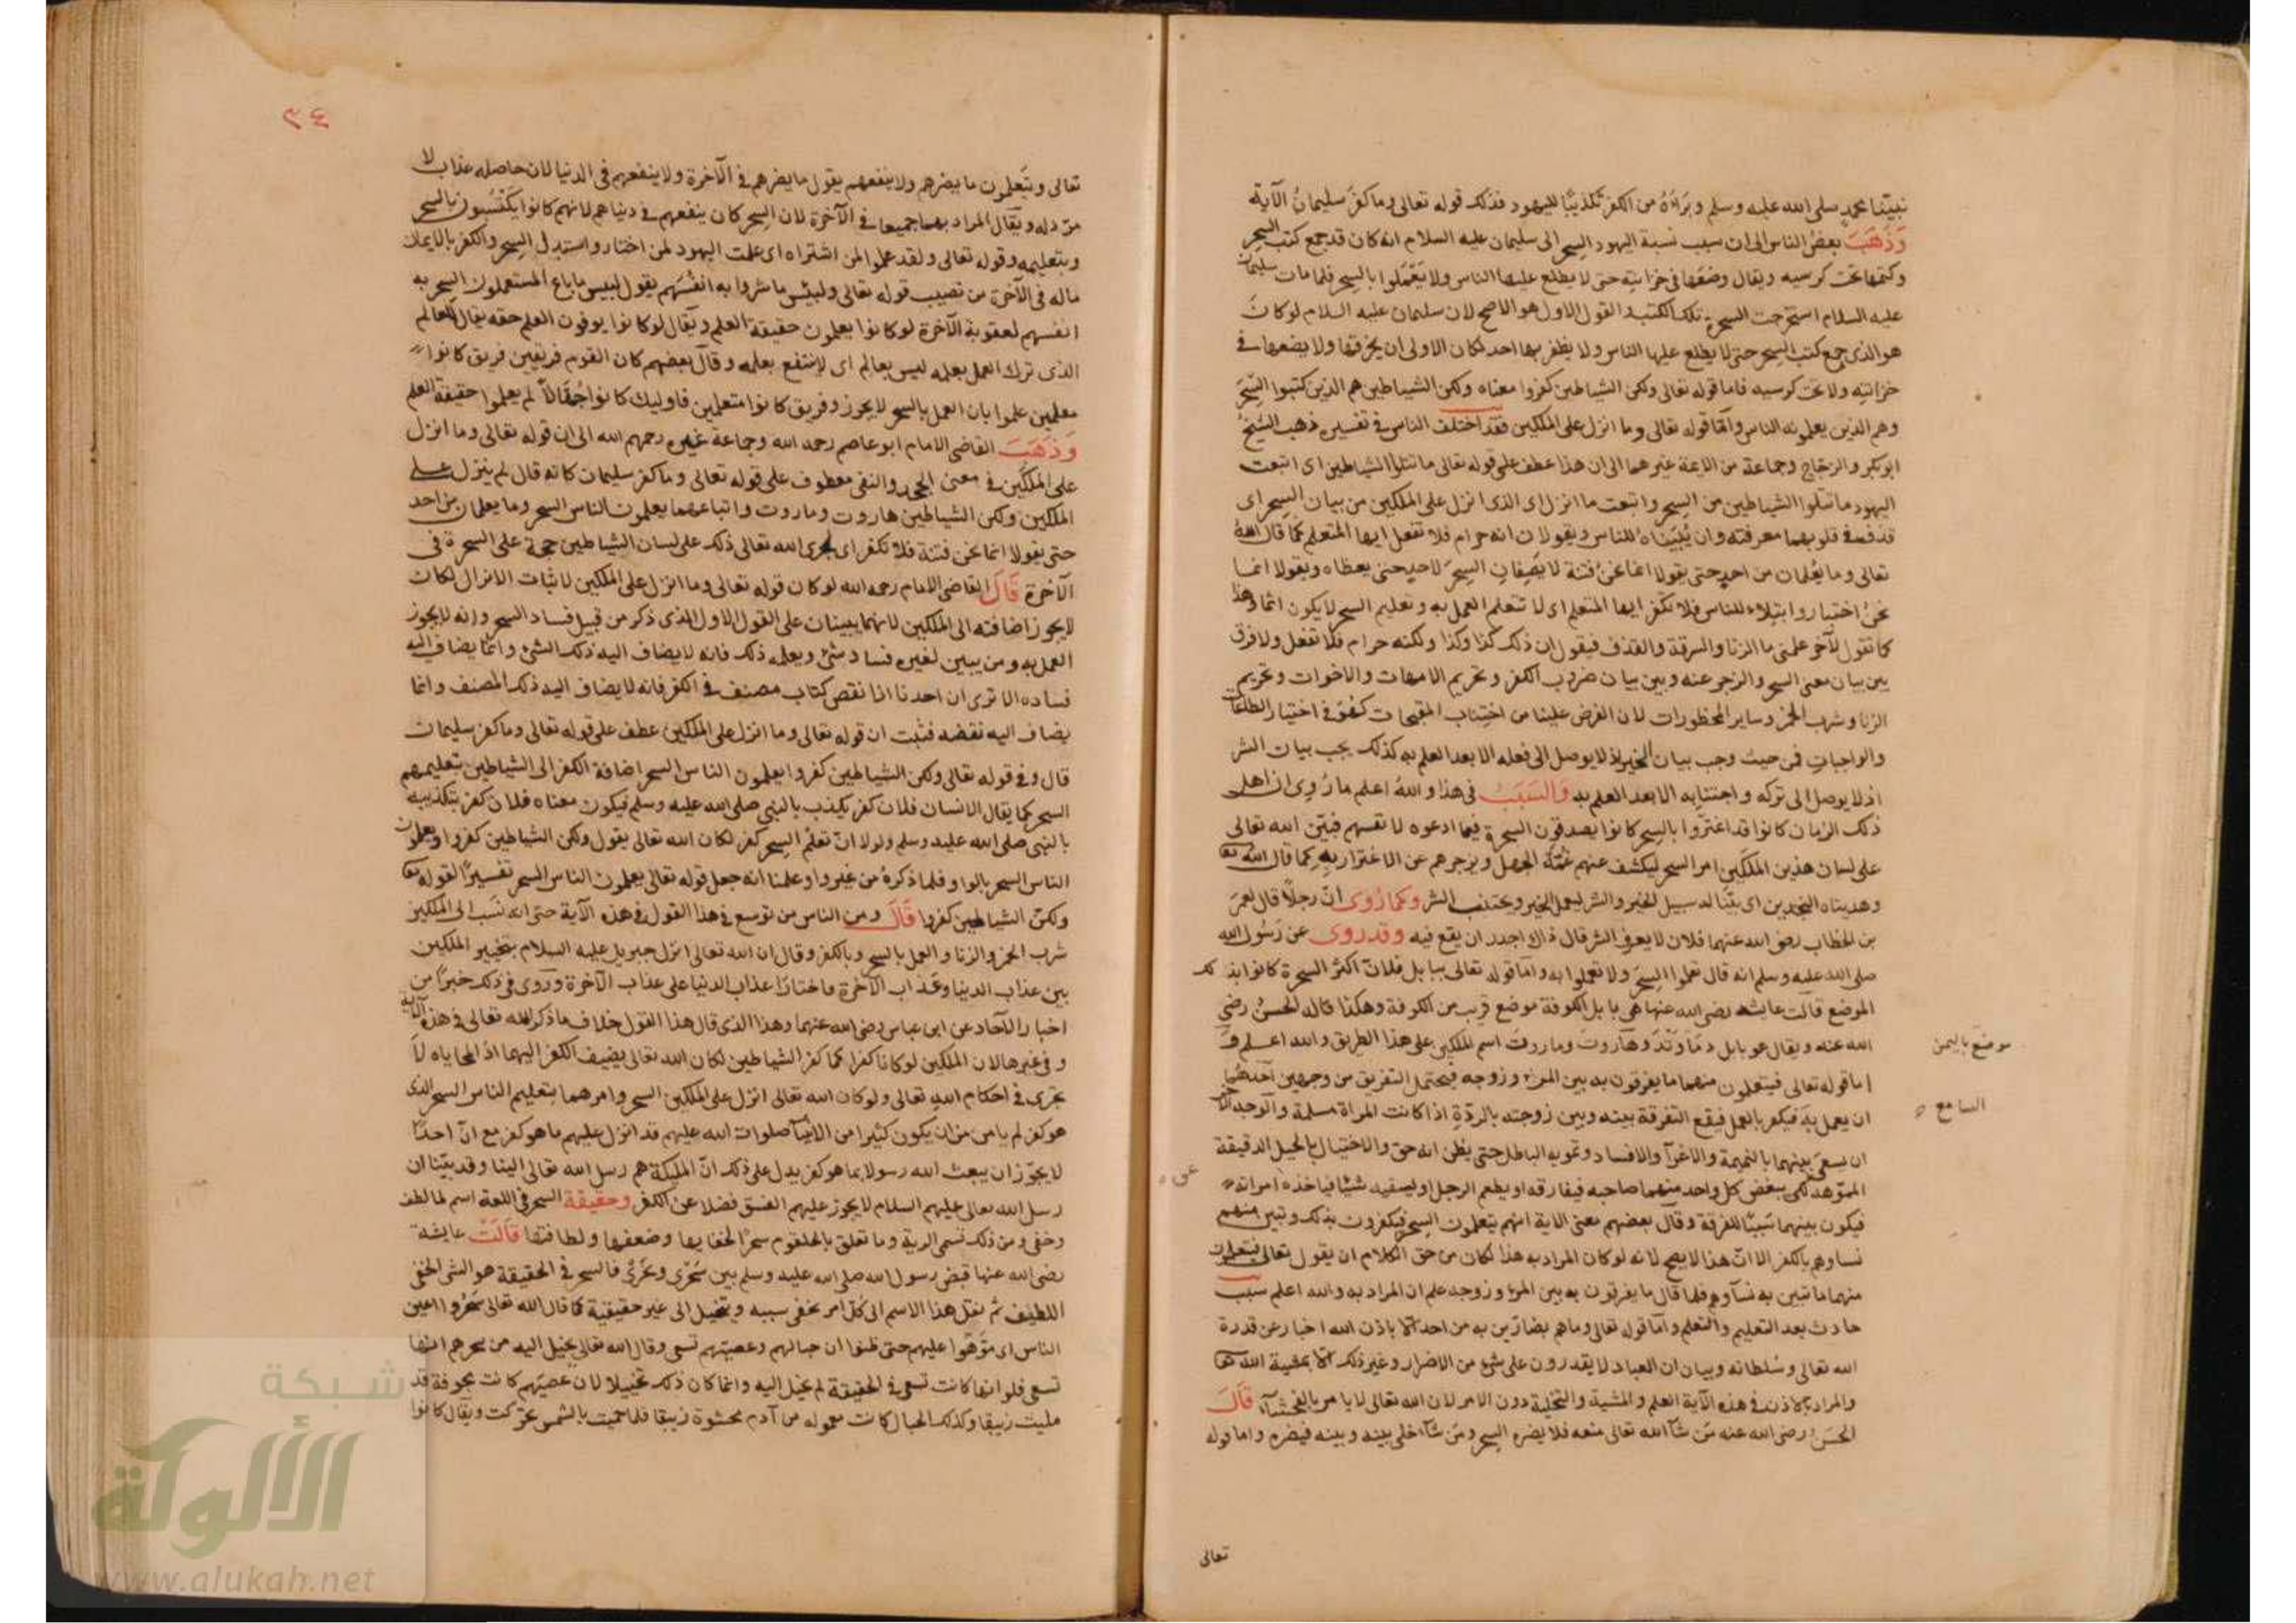 نبيّنا محمد صلى الله عليه وسلم وبَرَاَهُ من الكفر تكذيبًا لليهود فذلك قوله تعالى وما كفر سليمانُ الآية
وَذَهَبَ بعضُ الناس الى ان سبب نسبة اليهود السِحر الى سليمان عليه السلام انه كان قد جمع كتب السِحر
وكتمها تحت كرسيه ويقال وضعها فى خزانته حتى لا يطلع عليها الناس ولا يَعْمَلوا بالسِحر فلما مات سليمان
عليه السلام استخرجت السحرة تلك الكتب والقول الاول هو الاصح لان سليمان عليه السلام لو كان
هو الذى جمع كتب السِحر حتى لا يطلع عليها الناس ولا يظفر بها احد لكان الاولى ان يحرقها ولا يضعها فى
خزانته ولا تحت كرسيه فاما قوله تعالى ولكن الشياطين كفروا معناه ولكن الشياطين هم الذين كتبوا السِّحرَ
وهم الذين يعلمونه الناس وامّا قوله تعالى وما انزل على الملكين فقد اختلف الناس فى تفسيره ذهب الشيخُ
ابو بكر والزجاج وجماعة من الايمة غيرهما الى ان هذا عطف على قوله تعالى ما تتلوا الشياطين اى اتبعت
اليهود ما تتلوا الشياطين من السِحر واتبعت ما انزل اى الذى انزل على الملكين من بيان السِحر اى
قذف فى قلوبهما معرفته وان يُبَيّناه للناس ويقولان انه حرام فلا تفعل ايها المتعلم كما قال اللهُ
تعالى وما يُعلمان من احدٍ حتى يقولا انما نحن فتنة لا يَصِفانِ السِحرَ لاحدٍ حتى يعظاه ويقولا انما
نحنُ اختبار وابتلاء للناس فلا تكفر ايها المتعلم اى لا تتعلم العمل به وتعليم السحر لا يكون اثما وهذا
كما تقول لآخر علمنى ما الزنا والسرقة والقذف فيقول ان ذلك كذا وكذا ولكنه حرام فلا تفعل ولا فرق
بين بيان معنى السحر والزجر عنه وبين بيان ضروب الكفر وتحريم الامهات والاخوات وتحريم
الزنا وشرب الخمر وساير المحظورات لان الغرض علينا من اجتناب المقبحات كهو فى اختيار الطاعات
والواجباتِ فمن حيث وجب بيان الخير اذ لا يوصل الى فعله الا بعد العلم به كذلك يجب بيان الشر
اذ لا يوصل الى تركه واجتنابه الا بعد العلم به وَالسَبَبُ فى هذا واللهُ اعلم ما رُوى ان اهل
ذلك الزمان كانوا قد اغترّوا بالسِحر كانوا يصدقون السحرة فيما ادعوه لانفسهم فبيّن الله تعالى
على لسان هذين الملكين امر السحر ليكشف عنهم غُمَّةَ الجهل ويزجرهم عن الاغترار بهِ كما قال الله تعا
وهديناه النجدين اى بيَّنَّا له سبيل الخير والشر ليعمل الخير ويجتنب الشر وكما رُوى انّ رجلًا قال لعمرَ
بن الخطاب رضى الله عنهما فلان لا يعرف الشر قال ذاك اجدر ان يقع فيه وقد روى عن رَسُول الله
صلى الله عليه وسلم انه قال تعلموا السِحرَ ولا تعملوا به واما قوله تعالى ببابل فلانّ اكثر السحرة كانوا بذلك
الموضع قالت عايشة رضى الله عنها هى بابل الكوفة موضع قريب من الكوفة وهكذا قاله الحسنُ رضى
الله عنه ويقال هو بابل دماوَنْدَ وهاروت وماروتَ اسم للملكين على هذا الطريق والله اعلم وَ
موضع باليمن
اما قوله تعالى فيتعلمون منهما ما يفرقون به بين المرء وزوجه فيحتمل التفريق من وجهين احدهُما
ان يعمل به فيكفر بالعمل فيقع التفرقة بينه وبين زوجته بالردّةِ اذا كانت المراة مسلمة والوجه الآخر
السامع
ان يسعى بينهما بالنميمة والاغرآ والافساد وتمويه الباطل حتى يظن انه حق والاحتيال بالحيل الدقيقة
المموّهة لكى يبغض كل واحد منهما صاحبه فيفارقه او يطعم الرجل او يسقيه شيئا فياخذه امراته
فيكون بينهما سَببًا للفرقة وقال بعضهم معنى الاية انهم يتعلمون السِحر فيكفرون بذلك وتبين منهم
نساوهم بالكفر الا انّ هذا لا يصح لانه لو كان المراد به هذا لكان من حق الكلام ان يقول تعالى فيتعلمون
منهما ما تبين به نسآوهم فلما قال ما يفرقون به بين المرء وزوجه علم ان المراد به والله اعلم سبب
حادث بعد التعليم والتعلم وامّا قوله تعالى وما هم بضارّين به من احد الّا باذن الله اخبار عن قدرة
الله تعالى وسُلطانه وبيان ان العباد لا يقدرون على شئ من الاضرار وغير ذلك الّا بمشية الله تعا
والمراد بالاذن فى هذه الآية العلم والمشية والتخلية دون الامر لان الله تعالى لا يامر بالفحشآء قَالَ
الحسَن رضى الله عنه مَن شآ الله تعالى منعه فلا يضره السِحر ومَن شآء خلى بينه وبينه فيضره واما قوله
تعالى
٣٤
تعالى ويتَعلمون ما يضرهم ولا ينفعهم يقول ما يضرهم فى الآخرة ولا ينفعهم فى الدنيا لان حاصله عذاب لا
مردّ له ويقال المراد بهما جميعا فى الآخرة لان السِحر كان ينفعهم فى دنياهم لانهم كانوا يَكْتَسِبُون بالسحر
وبتعليمه وقوله تعالى ولقد علموا لمن اشتراه اى علمت اليهود لمن اختار واستبدل السِحر والكفر بالايمان
ماله فى الآخرة من نصيب قوله تعالى ولبئس ما شروا به انفسَهم يقول لبيس ما باع المستعملون السِحر به
انفسهم لعقوبة الآخرة لو كانوا يعلمون حقيقة العلم ويقال لو كانوا يوفون العلم حقه يقال للعالم
الذى ترك العمل بعلمه ليس بعالم اى لا ينتفع بعلمه وقال بعضهم كان القوم فريقين فريق كانوا
معلمين علموا بان العمل بالسحر لا يجوز وفريق كانوا متعلمين فاوليك كانوا جُهَّالاً لم يعلموا حقيقة العلم
وَذَهَبَ القاضى الامام ابو عاصم رحمه الله وجماعة غيره رحمهم الله الى ان قوله تعالى وما انزل
على الملكَين فى معنى الجحد والنفى معطوف على قوله تعالى وما كفر سليمان كانه قال لم ينزل على
الملكين ولكن الشياطين هاروت وماروت واتباعهما يعلمون الناس السحر وما يعلمان من احد
حتى يقولا انما نحن فتنة فلا تكفر اى اجرى الله تعالى ذلك على لسان الشياطين حجة على السحرة فى
الآخرة قَالَ القاضى الامام رحمه الله لو كان قوله تعالى وما انزل على الملكين لاثبات الانزال لكان
لا يجوز اضافته الى الملكين لانهما يبينان على القول الاول الذى ذكر من قبيل فساد السحر وانه لا يجوز
العمل به ومن يبين لغيره فساد شئ ويعلمه ذلك فانه لا يضاف اليه ذلك الشئ وانّما يضاف اليه
فساده الا ترى ان احدنا اذا نقض كتاب مصنف فى الكفر فانه لا يضاف اليه ذلك المصنف وانما
يضاف اليه نقضه فثبت ان قوله تعالى وما انزل على الملكين عطف على قوله تعالى وما كفر سليمان
قال وفى قوله تعالى ولكن الشياطين كفروا يعلمون الناس السحر اضافة الكفر الى الشياطين بتعليمهم
السحر كما يقال الانسان فلان كفر يكذب بالنبى صلى الله عليه وسلم فيكون معناه فلان كفر بتكذيبه
بالنبى صلى الله عليه وسلم ولولا انّ تعلُم السِحر كفر لكان الله تعالى يقول ولكن الشياطين كفروا ويعلمون
الناس السحر بالواو فلما ذكرهُ من غير واو علمنا انه جعل قوله تعالى يعلمون الناس السحر تفسيرًا لقوله تعا
ولكنّ الشياطين كفروا قَالَ ومن الناس من توسع فى هذا القول فى هذه الآية حتى انه نَسَب الى الملكين
شرب الخمر والزنا والعمل بالسحر وبالكفر وقال ان الله تعالى انزل جبريل عليه السلام بتخيير الملكين
بين عذاب الدنيا وعَذاب الآخرة فاختارا عذاب الدنيا على عذاب الآخرة ورَوى فى ذلك خبرًا من
اخبار الآحاد عن ابن عباس رضى الله عنهما وهذا الذى قال هذا القول خلاف ما ذكر الله تعالى فى هذه الآية
وفى غيرها لان الملكين لو كانا كفرا كما كفر الشياطين لكان الله تعالى يضيف الكفر اليهما اذ المحاباه لَا
تجرى فى احكام اللهِ تعالى ولو كان الله تعالى انزل على الملكين السحر وامرهما بتعليم الناس السحر الذى
هو كفر لم يامن من ان يكون كثيرا من الانبيآ صلوات الله عليهم قد انزل عليهم ما هو كفر مع انّ احدًا
لا يجوّز ان يبعث الله رسولا بما هو كفر يدل على ذلك انّ المليكة هم رسل الله تعالى الينا وقد بيّنا ان
رسل الله تعالى عليهم السلام لا يجوز عليهم الفسق فضلا عن الكفر وحقيقة السحر فى اللغة اسم لما لطف
وخفى ومن ذلك تسمى الرية وما تعلق بالحلقوم سحرًا لخفايها وضعفها ولطافتها قَالَتْ عايشة
رضى الله عنها قبض رسول الله صلى الله عليه وسلم بين سَحرى ونَحرى فالسحر فى الحقيقة هو الشى الخفى
اللطيف ثم نقل هذا الاسم الى كُلّ امر يخفى سببه ويتخيل الى غير حقيقية كما قال الله تعالى سَحَرُوا اعين
الناس اى مَوّهُوا عليهم حتى ظنوا ان حبالهم وعصيّهم تسعى وقال الله تعالى يخيل اليه من سحرهم انها
تسعى فلو انها كانت تسعى فى الحقيقة لم يخيل اليه وانما كان ذلك تخييلا لان عصيّهم كانت مجوفة قد
مليت زيبقا وكذلك الحبال كانت معموله من آدم محشوة زيبقا فلما حميت بالشمس تحرّكت ويقال كانوا
شبكة
الألوكة
www.alukah.net